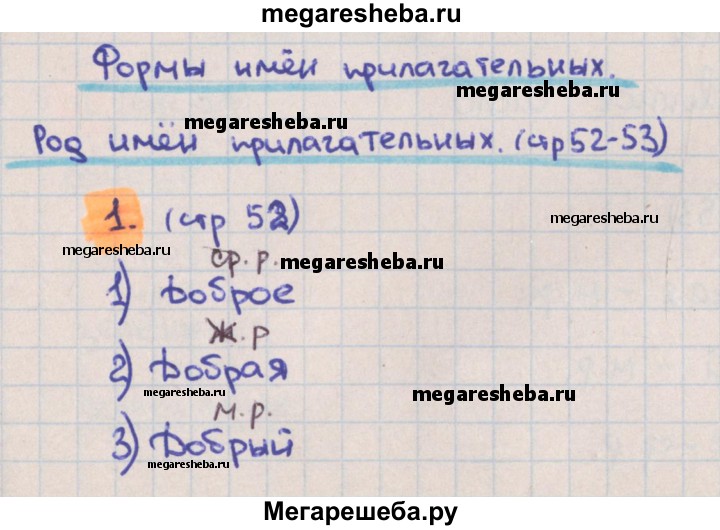 megaresheba.ru
Формы имён прилагательных.
megaresheba.ru
megaresheba.ru
Род имён прилагательных. (стр 52-53)
1. (стр 52)
megaresheba.ru
megaresheba.ru
ср. р.
megaresheba.ru
1) Доброе
ж. р
2) Добрая
megaresheba.ru
megaresheba.ru
м. р.
3) Добрый
megaresheba.ru
Мегарешеба.ру